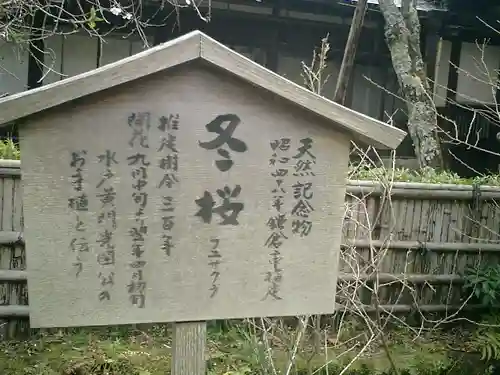 天然記念物
昭和四六年 鎌倉市指定
冬桜
フユザクラ
推定樹令 三百年
開花 九月中旬より翌年四月初旬
水戸黄門光圀公の
お手植と伝う